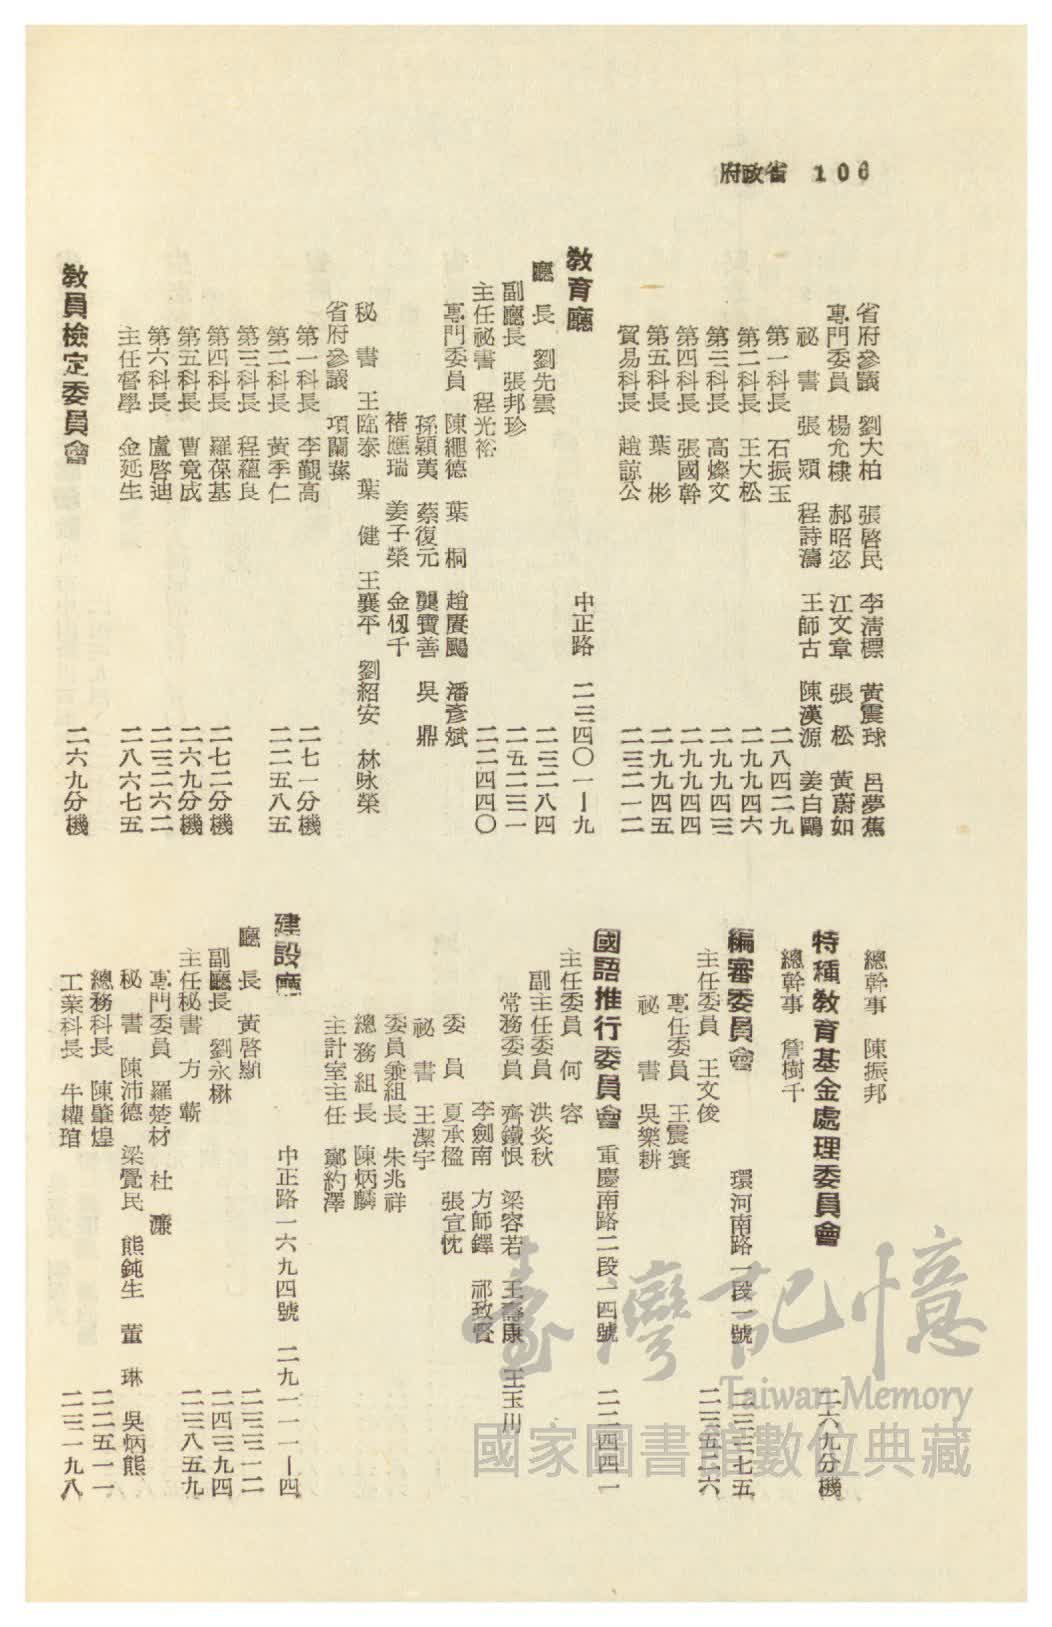 府政省 106
省府參議 劉大柏 張啓民 李清標 黃震球 呂夢蕉
專門委員 楊允棣 郝昭宓 江文章 張 松 黃蔚如
祕 書 張 熲 程詩濤 王師古 陳漢源 姜白鷗
第一科長 石振玉 二八四二九
第二科長 王大松 二九九四六
第三科長 高燦文 二九九四三
第四科長 張國幹 二九九四四
第五科長 葉 彬 二九九四五
貿易科長 趙諒公 二三二一二
教育廳 中正路 二三四〇一—九
廳 長 劉先雲 二三二八四
副廳長 張邦珍 二五二三一
主任祕書 程光裕 二二四四〇
專門委員 陳繩德 葉 桐 趙賡颺 潘彥斌
孫穎蕘 蔡復元 龔寶善 吳 鼎
褚應瑞 姜子榮 金仞千
秘 書 王臨泰 葉 健 王襄平 劉紹安 林咏榮
省府參議 項蘭蓀
第一科長 李覲高 二七一分機
第二科長 黃季仁 二二五八五
第三科長 程蘊良
第四科長 羅葆基 二七二分機
第五科長 曹竟成 二六九分機
第六科長 盧啓迪 二三二六二
主任督學 金延生 二八六七五
教員檢定委員會 二六九分機
總幹事 陳振邦
特種教育基金處理委員會 二六九分機
總幹事 詹樹千
編審委員會 環河南路一段一號 二三三七五
主任委員 王文俊 二三五三六
專任委員 王震寰
祕 書 吳樂耕
國語推行委員會 重慶南路二段一四號 二二四四一
主任委員 何 容
副主任委員 洪炎秋
常務委員 齊鐵恨 梁容若 王壽康 王玉川
李劍南 方師鐸 祁致賢
委 員 夏承楹 張宣忱
祕 書 王潔宇
委員兼組長 朱兆祥
總務組長 陳炳麟
主計室主任 鄭約澤
建設廳 中正路一六九四號 二九一一一—四
廳 長 黃啓顯 二三三一二
副廳長 劉永楙 二四三九四
主任秘書 方 蘄 二三八五九
專門委員 羅楚材 杜 濂
秘 書 陳沛德 梁覺民 熊鈍生 董 琳 吳炳熊
總務科長 陳肇煌 二二五一一
工業科長 牛權琯 二三一九八
臺灣記憶
Taiwan Memory
國家圖書館數位典藏